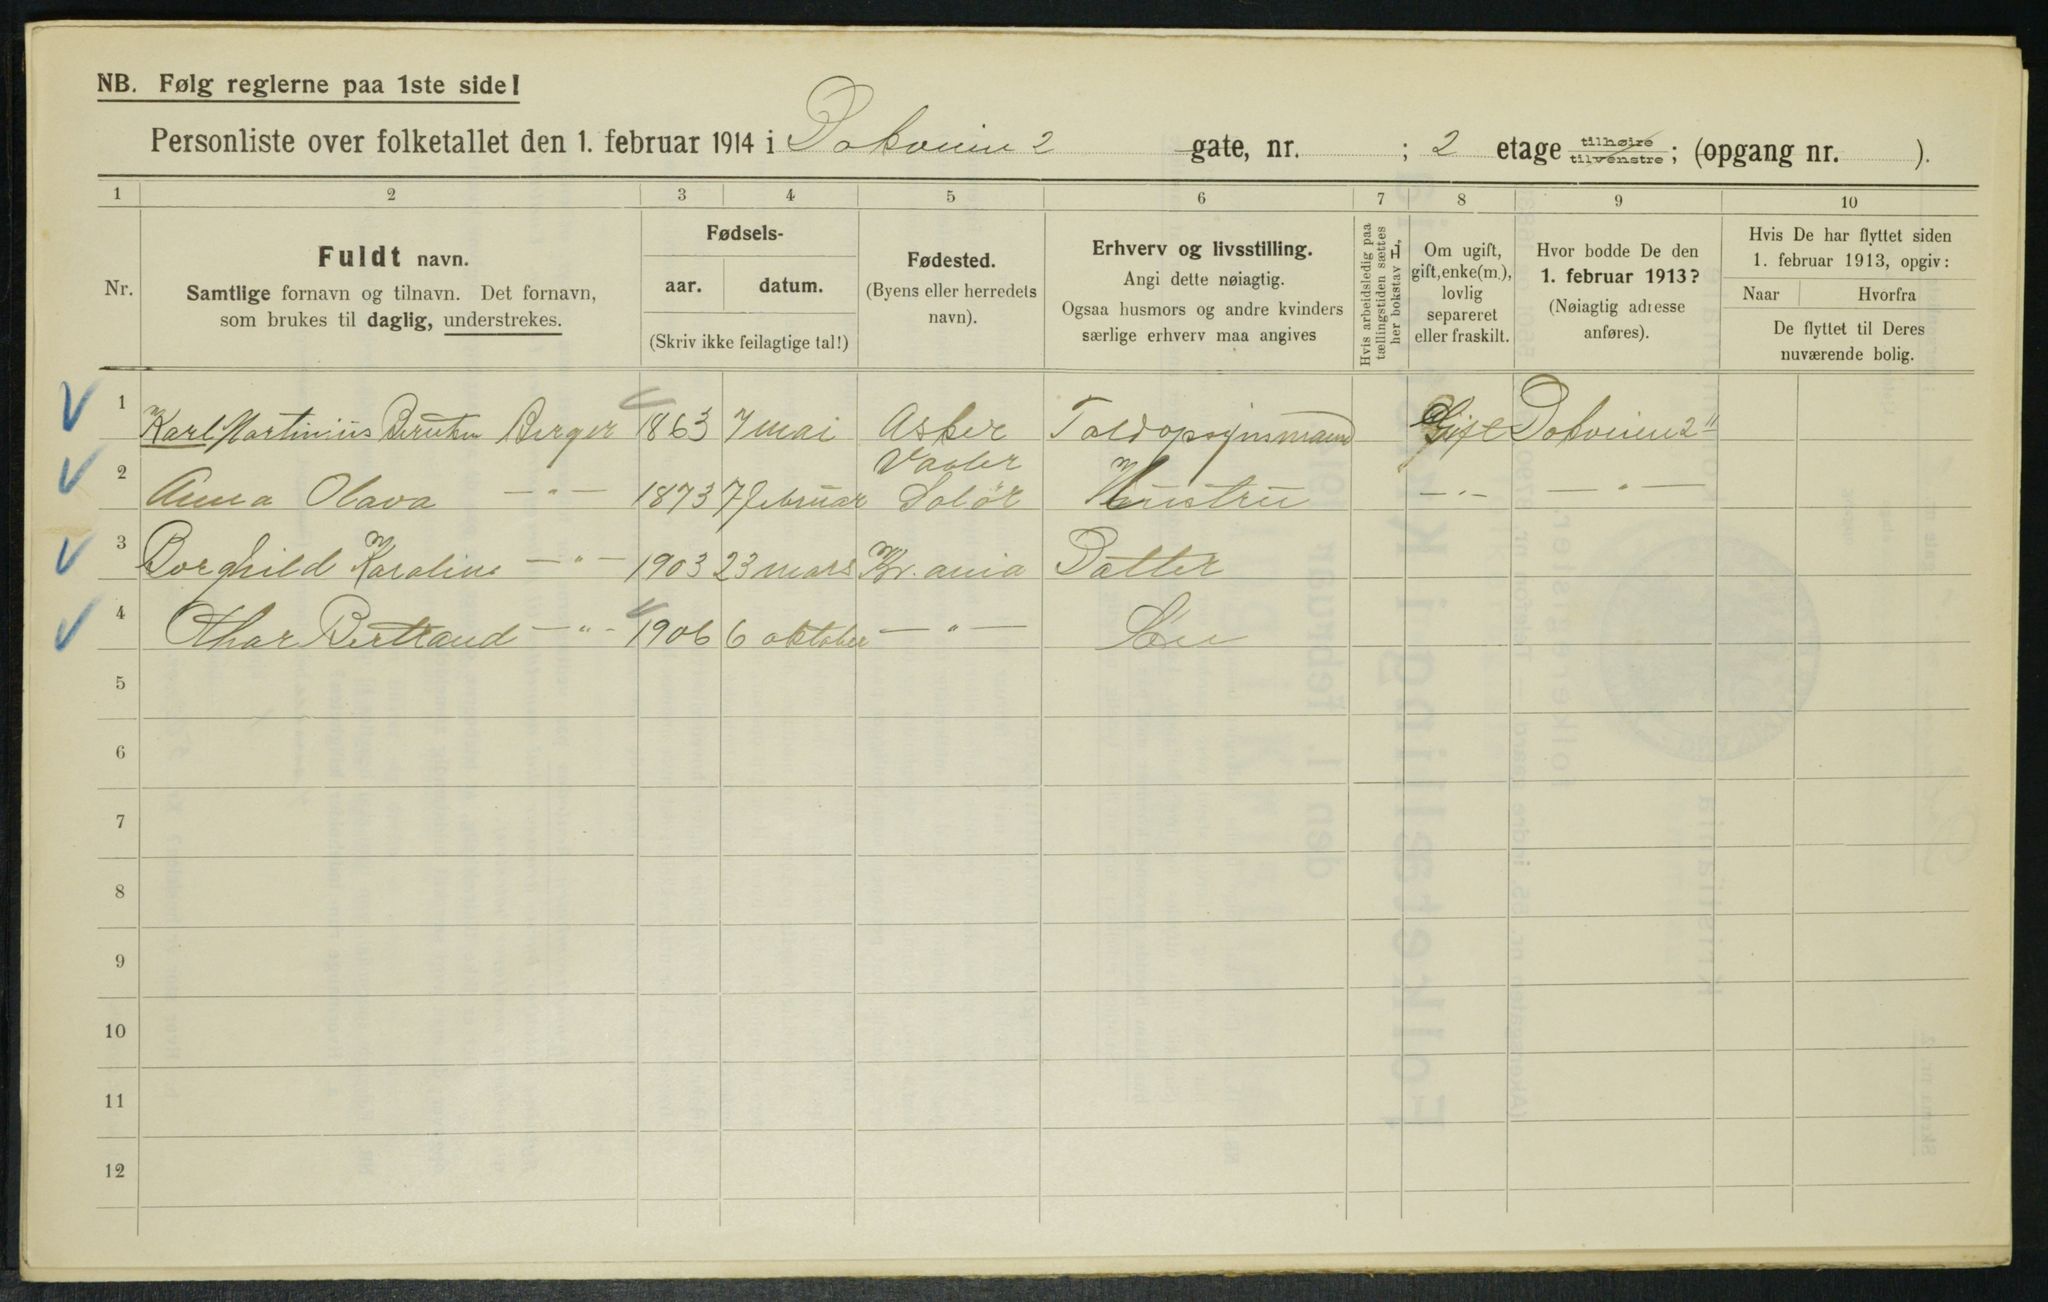 NB. Følg reglerne paa 1ste side!
Personliste over folketallet den 1. februar 1914 i Dokveien 2 gate, nr. ; 2 etage tilhøire tilvenstre; (opgang nr. ).
1 2 3 4 5 6 7 8 9 10
Nr.
Fuldt navn.
Samtlige fornavn og tilnavn. Det fornavn,
som brukes til daglig, understrekes.
Fødsels-
aar. datum.
(Skriv ikke feilagtige tal!)
Fødested.
(Byens eller herredets
navn).
Erhverv og livsstilling.
Angi dette nøiagtig.
Ogsaa husmors og andre kvinders
særlige erhverv maa angives
Hvis arbeidsledig paa
tællingstiden sættes
her bokstav L.
Om ugift,
gift, enke(m.),
lovlig
separeret
eller fraskilt.
Hvor bodde De den
1. februar 1913?
(Nøiagtig adresse
anføres).
Hvis De har flyttet siden
1. februar 1913, opgiv:
Naar Hvorfra
De flyttet til Deres
nuværende bolig.
1 Karl Martinius Berger 1863 7 mai Asker Toldopsynsmand Gift Dokveien 2 II
2 Anna Olava —„— 1873 7 februar Vaaler Solør Hustru —„— —„—
3 Borghild Karoline —„— 1903 23 mars Kr.ania Datter
4 Othar Bertrand —„— 1906 6 oktober —„— Søn
5
6
7
8
9
10
11
12